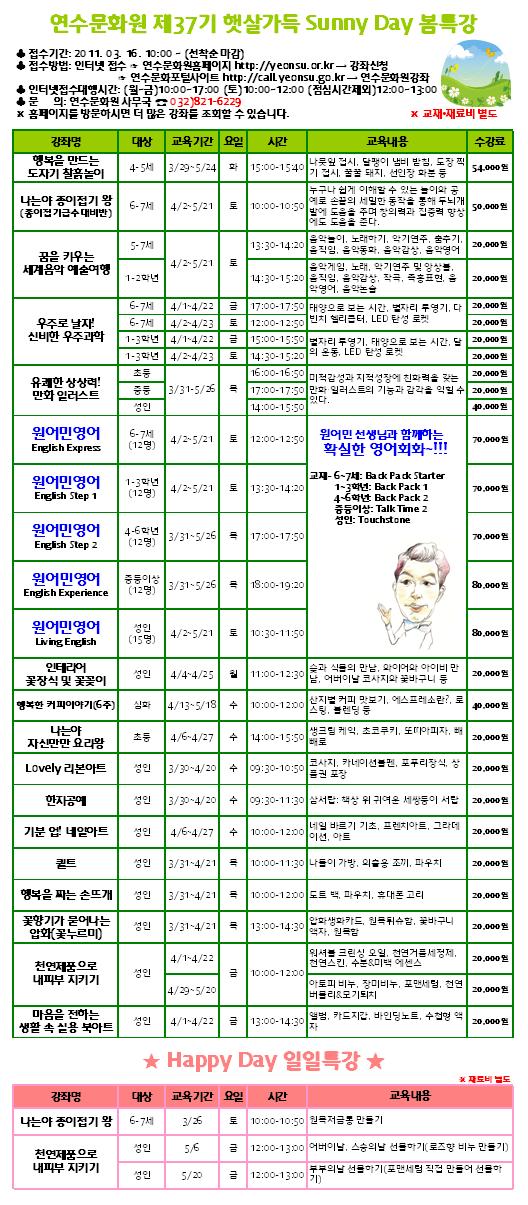 연수문화원 제37기 햇살가득 Sunny Day 봄특강
♣ 접수기간: 2011. 03. 16. 10:00 ~ (선착순 마감)
♣ 접수방법: 인터넷 접수 ☞ 연수문화원홈페이지 http://yeonsu.or.kr → 강좌신청
☞ 연수문화포털사이트 http://call.yeonsu.go.kr → 연수문화원강좌
♣ 인터넷접수대행시간: (월~금)10:00~17:00 (토)10:00~12:00 (점심시간제외)12:00~13:00
♣ 문 의: 연수문화원 사무국 ☎ 032)821-6229
※ 홈페이지를 방문하시면 더 많은 강좌를 조회할 수 있습니다.
※ 교재·재료비 별도
강좌명 대상 교육기간 요일 시간 교육내용 수강료
행복을 만드는
도자기 찰흙놀이
4-5세 3/29~5/24 화 15:00-15:40
나뭇잎 접시, 달팽이 냄비 받침, 도장 찍
기 접시, 꿀꿀 돼지, 선인장 화분 등
54,000원
나는야 종이접기 왕
(종이접기급수대비반)
6-7세 4/2~5/21 토 10:00-10:50
누구나 쉽게 이해할 수 있는 놀이와 공
예로 손끝의 세밀한 동작을 통해 두뇌개
발에 도움을 주며 창의력과 집중력 향상
에도 도움을 준다.
50,000원
꿈을 키우는
세계음악 예술여행
5-7세 4/2~5/21 토 13:30-14:20
음악놀이, 노래하기, 악기연주, 춤추기,
움직임, 음악동화, 음악감상, 음악영어
20,000원
1-2학년 14:30-15:20
음악게임, 노래, 악기연주 및 앙상블,
움직임, 음악감상, 작곡, 즉흥표현, 음
악영어, 음악논술
20,000원
우주로 날자!
신비한 우주과학
6-7세 4/1~4/22 금 17:00-17:50
태양으로 보는 시간, 별자리 투영기, 다
빈치 헬리콥터, LED 탄성 로켓
20,000원
6-7세 4/2~4/23 토 12:00-12:50 20,000원
1-3학년 4/1~4/22 금 15:00-15:50
별자리 투영기, 태양으로 보는 시간, 달
의 운동, LED 탄성 로켓
20,000원
1-3학년 4/2~4/23 토 14:30-15:20 20,000원
유쾌한 상상력!
만화 일러스트
초등 3/31-5/26 목 16:00-16:50
미적감성과 지적성장에 친화력을 갖는
만화 일러스트의 기능과 감각을 익힐 수
있다.
20,000원
중등 17:00-17:50 20,000원
성인 14:00-15:50 40,000원
원어민영어
English Express
6-7세
(12명)
4/2~5/21 토 12:00-12:50
원어민 선생님과 함께하는
확실한 영어회화~!!!
교재- 6~7세: Back Pack Starter
1~3학년: Back Pack 1
4~6학년: Back Pack 2
중등이상: Talk Time 2
성인: Touchstone
70,000원
원어민영어
English Step 1
1-3학년
(12명)
4/2~5/21 토 13:30-14:20 70,000원
원어민영어
English Step 2
4-6학년
(12명)
3/31~5/26 목 17:00-17:50 70,000원
원어민영어
English Experience
중등이상
(12명)
3/31~5/26 목 18:00-19:20 80,000원
원어민영어
Living English
성인
(15명)
4/2~5/21 토 10:30-11:50 80,000원
인테리어
꽃장식 및 꽃꽂이
성인 4/4~4/25 월 11:00-12:30
숯과 식물의 만남, 와이어와 아이비 만
남, 어버이날 코사지와 꽃바구니 등
20,000원
행복한 커피이야기(6주) 심화 4/13~5/18 수 10:00-12:00
산지별 커피 맛보기, 에스프레소란?, 로
스팅, 블렌딩 등
40,000원
나는야
자신만만 요리왕
초등 4/6~4/27 수 14:00-15:50
생크림 케익, 초코쿠키, 또띠아피자, 빼
빼로
20,000원
Lovely 리본아트 성인 3/30~4/20 수 09:30-10:50
코사지, 카네이션볼펜, 포푸리장식, 상
품권 포장
20,000원
한지공예 성인 3/30~4/20 수 09:30-11:30 삼서랍: 책상 위 귀여운 세쌍둥이 서랍 20,000원
기분 업! 네일아트 성인 4/6~4/27 수 10:00-12:00
네일 바르기 기초, 프렌치아트, 그라데
이션, 아트
20,000원
퀼트 성인 3/31~4/21 목 10:00-11:30 나들이 가방, 외출용 조끼, 파우치 20,000원
행복을 짜는 손뜨개 성인 3/31~4/21 목 10:00-12:00 토트 백, 파우치, 휴대폰 고리 20,000원
꽃향기가 묻어나는
압화(꽃누르미)
성인 3/31~4/21 목 13:00-14:30
압화생화카드, 원목튀슈함, 꽃바구니
액자, 원목함
20,000원
천연제품으로
내피부 지키기
성인 4/1~4/22 금 10:00-12:00
워셔블 크린싱 오일, 천연거품세정제,
천연스킨, 수분&미백 에센스
20,000원
4/29~5/20
아토피 비누, 장미비누, 포맨세럼, 천연
버물리&모기퇴치
20,000원
마음을 전하는
생활 속 실용 북아트
성인 4/1~4/22 금 13:00-14:30
앨범, 카드지갑, 바인딩노트, 수첩형 액
자
20,000원
★ Happy Day 일일특강 ★
※ 재료비 별도
강좌명 대상 교육기간 요일 시간 교육내용
나는야 종이접기 왕 6-7세 3/26 토 10:00-10:50 원목저금통 만들기
천연제품으로
내피부 지키기
성인 5/6 금 12:00-13:00 어버이날, 스승의날 선물하기(로즈향 비누 만들기)
성인 5/20 금 12:00-13:00
부부의날 선물하기(포맨세럼 직접 만들어 선물하
기)